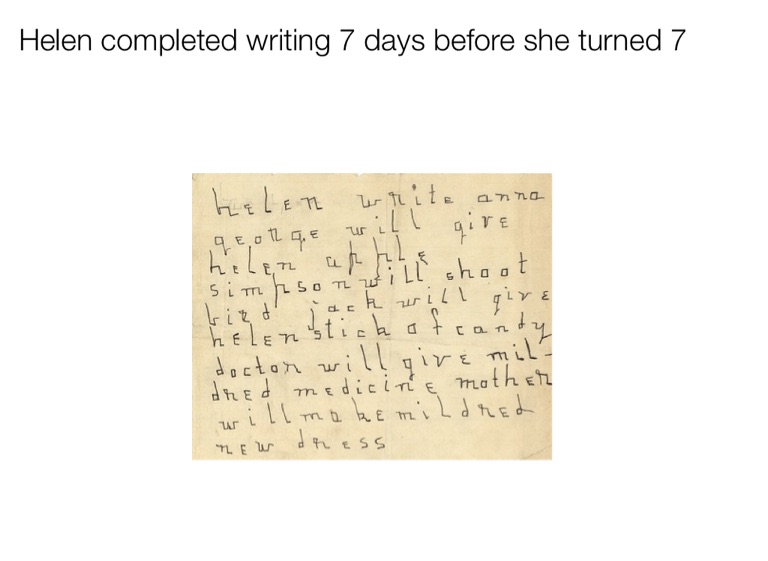 Helen completed writing 7 days before she turned 7
helen write anna
george will give
helen apple
simpson will shoot
bird jack will give
helen stick of candy
doctor will give mil-
dred medicine mother
will make mildred
new dress